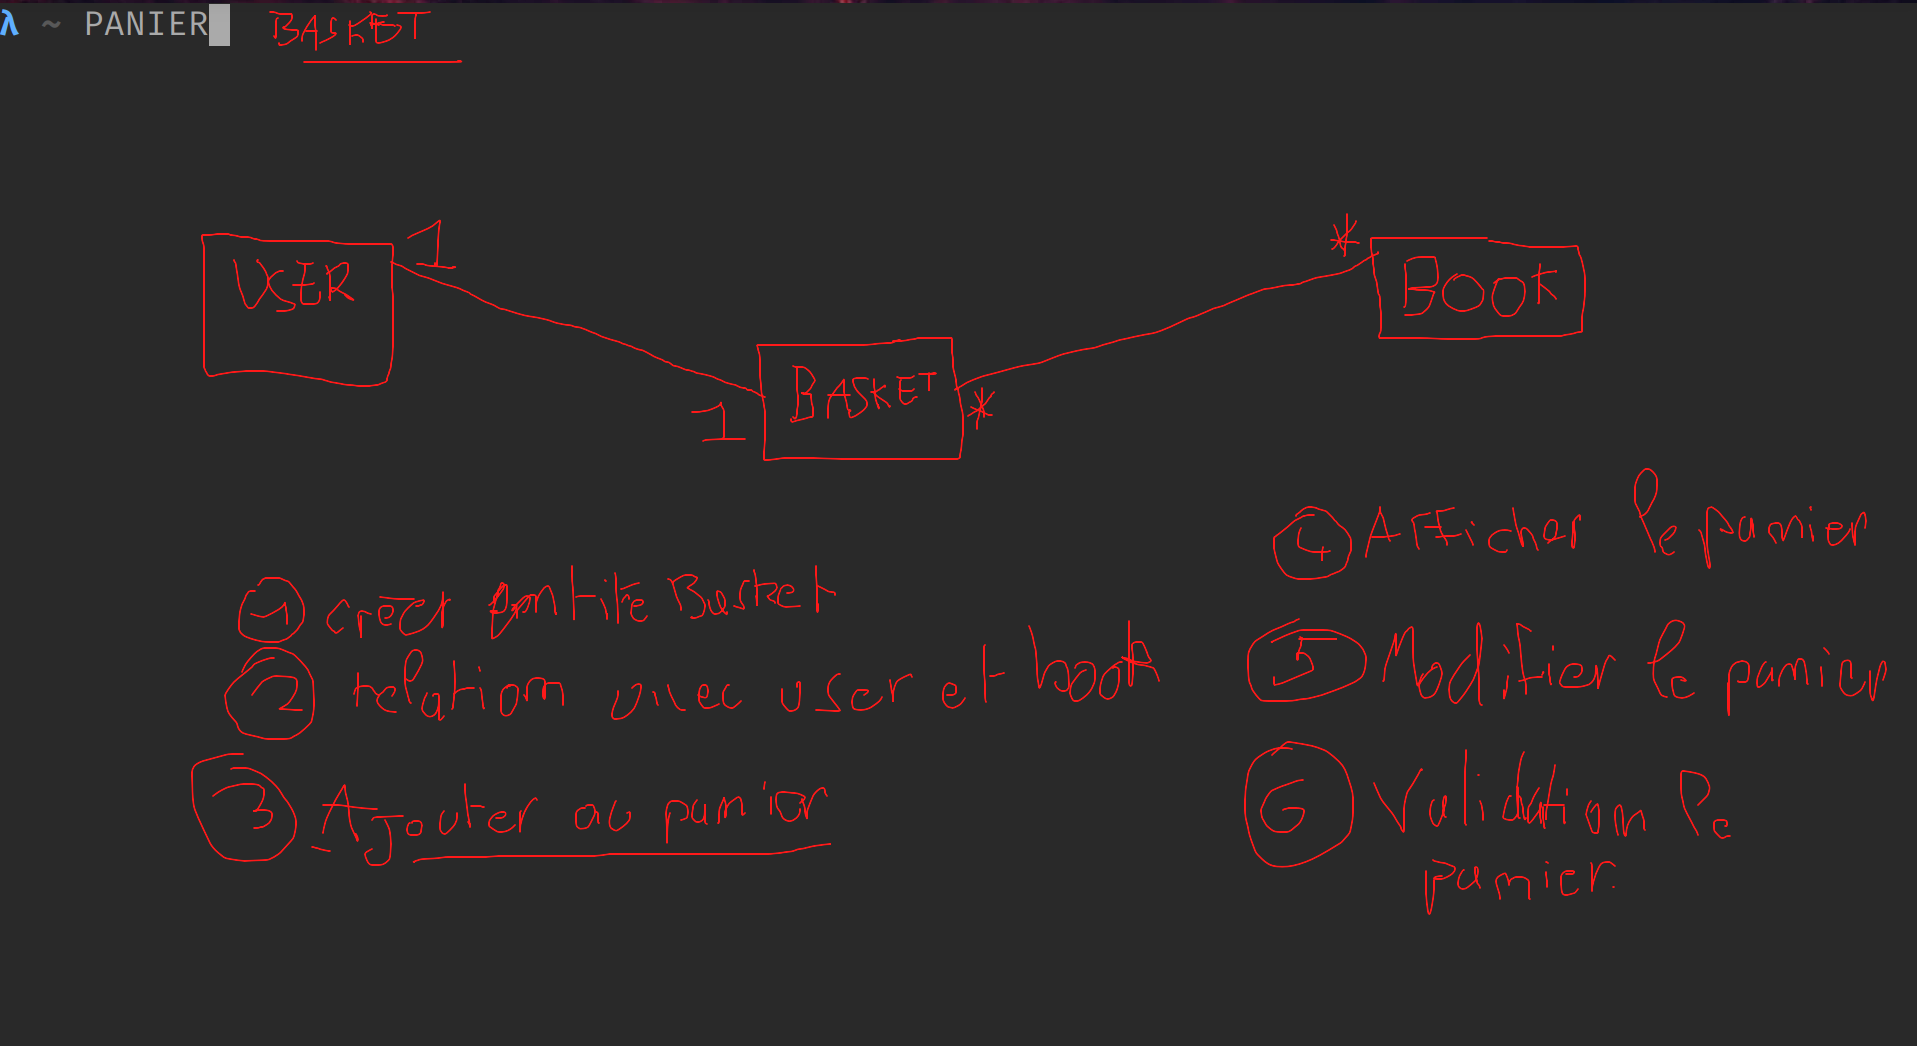 λ ~ PANIER BASKET
1 *
USER BOOK
BASKET
1 *
1 créer entité Basket
2 relation avec user et book
3 Ajouter au panier
4 Afficher le panier
5 Modifier le panier
6 Validation le
panier.